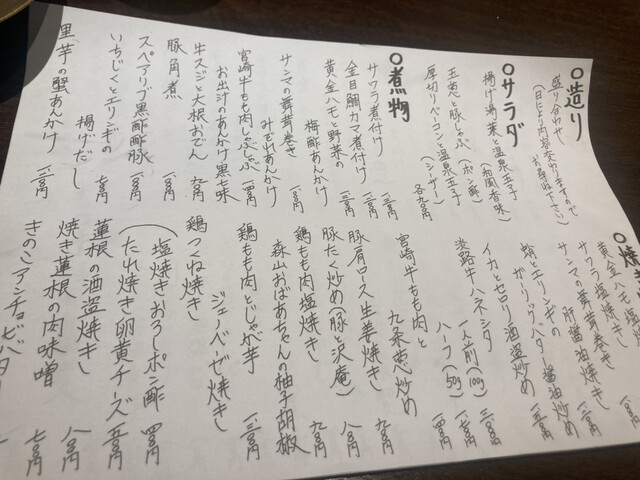 ○造り
盛り合わせ
(日により内容変わりますので
お尋ね下さい)
○サラダ
揚げ湯葉と温泉玉子
(和風香味)
玉葱と豚しゃぶ(ポン酢)
厚切りベーコンと温泉玉子
(シーザー)
各九〇〇円
○煮物
サワラ煮付け
金目鯛カマ煮付け
黄金ハモと野菜の
梅酢あんかけ
サンマの舞茸巻き
みぞれあんかけ
宮崎牛もも肉しゃぶしゃぶ
お出汁のあんかけ黒七味
牛スジと大根おでん 九〇〇円
豚角煮
スペアリブ黒酢酢豚
いちじくとエリンギの
揚げだし 七〇〇円
里芋の蟹あんかけ
○焼
黄金ハモ塩焼
サワラ塩焼き
サンマの舞茸巻き
肝醤油焼き
蛤とエリンギの
ガーリックバター醤油炒め
イカとセロリ酒盗炒め
淡路牛ハネシタ
一人前(100g)
ハーフ(50g)
宮崎牛もも肉と
九条葱炒め
豚肩ロース生姜焼き 九〇〇円
豚たん炒め(豚と沢庵) 八〇〇円
鶏もも肉塩焼き 九〇〇円
森山おばあちゃんの柚子胡椒
鶏もも肉とじゃが芋
ジェノベーゼ焼き
鶏つくね焼き
(塩焼きおろしポン酢
たれ焼き卵黄チーズ
蓮根の酒盗焼き 八〇〇円
焼き蓮根の肉味噌 七〇〇円
きのこアンチョビバター